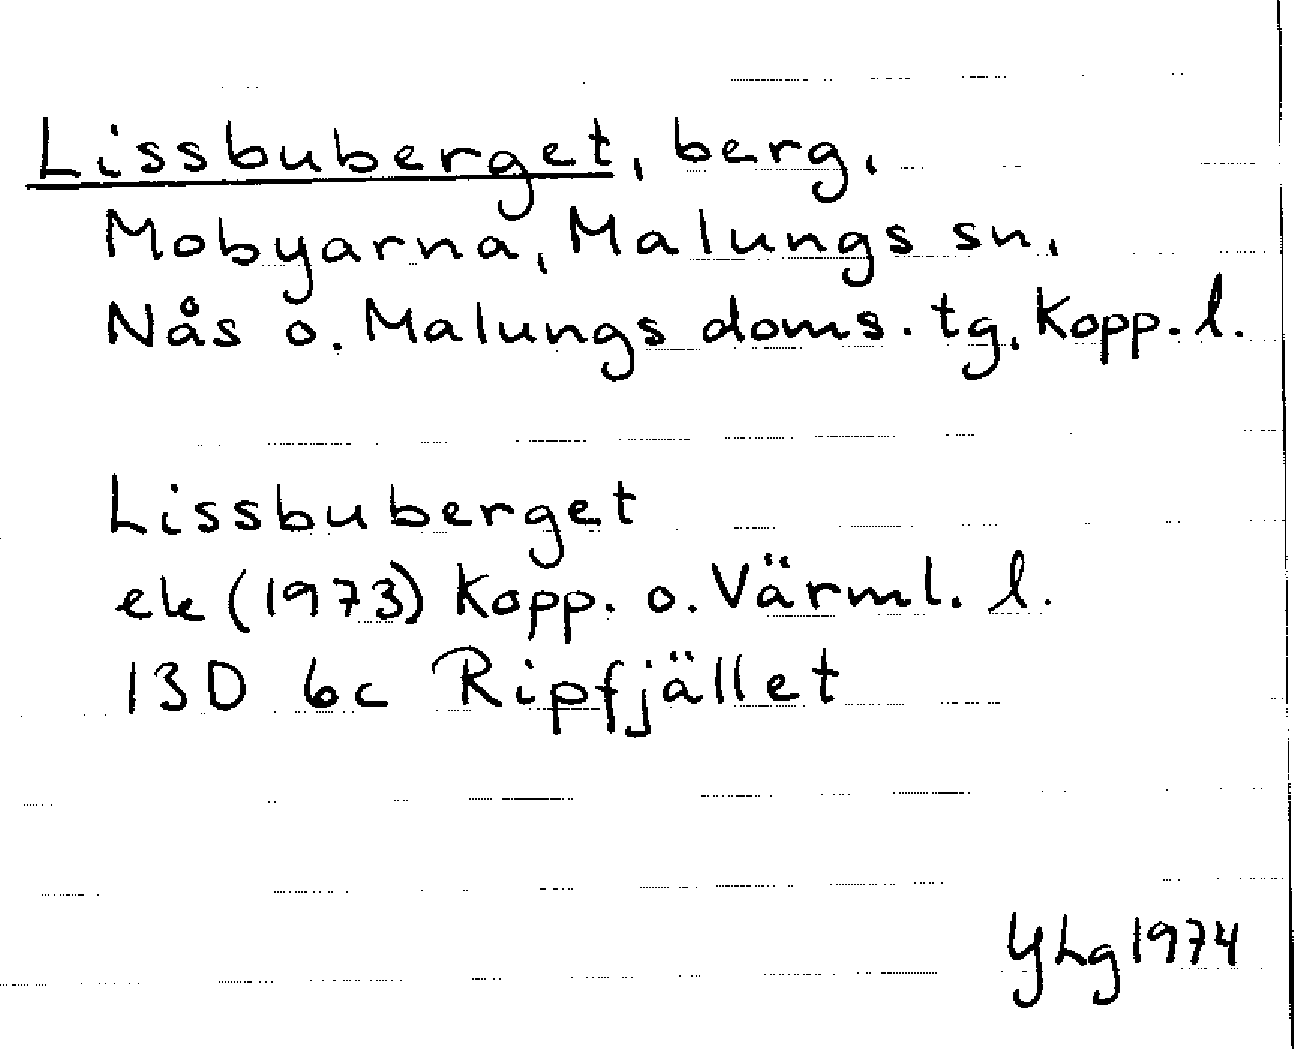 Lissbuberget, berg,
Mobyarna, Malungs sn,
Nås o. Malungs doms. tg, Kopp. l.
Lissbuberget
ek (1973) Kopp. o. Värml. l.
13D 6c Ripfjället
YLg 1974